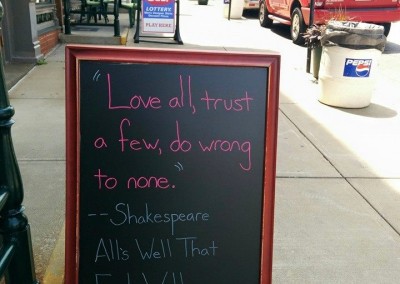 LOTTERY
PLAY HERE
PEPSI
"Love all, trust
a few, do wrong
to none."
--Shakespeare
All's Well That